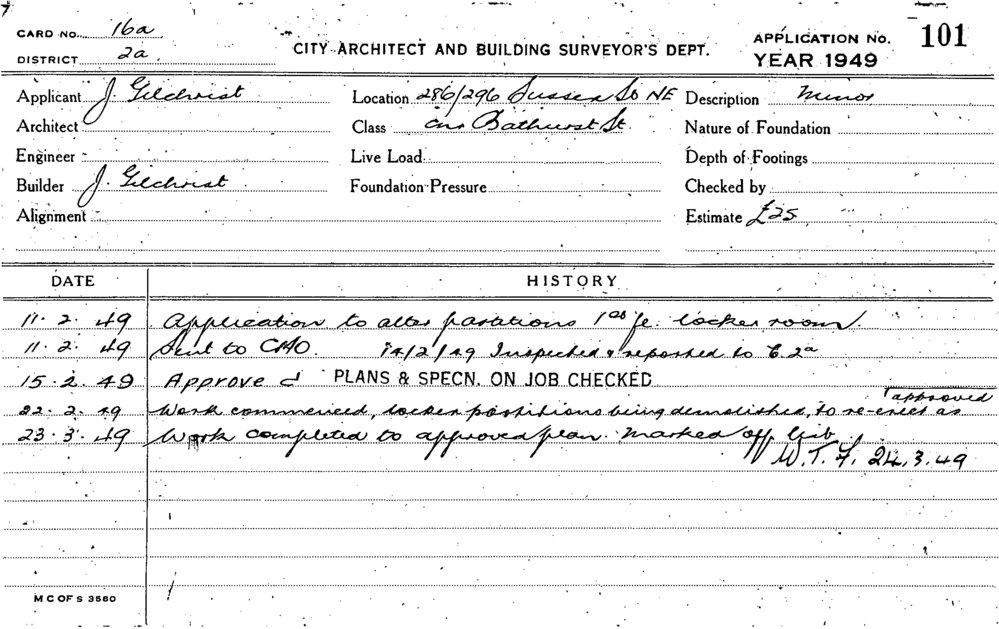 CARD NO. 16a
DISTRICT 2a.
CITY ARCHITECT AND BUILDING SURVEYOR'S DEPT.
APPLICATION No. 101
YEAR 1949
Applicant J. Gilchrist Location 286/296 Sussex St NE Description Minor
Architect Class cnr Bathurst St. Nature of Foundation
Engineer Live Load Depth of Footings
Builder J. Gilchrist Foundation Pressure Checked by
Alignment Estimate £25
DATE HISTORY
11. 2. 49 Application to alter partitions 1st fl. locker room.
11. 2. 49 Sent to 14/2/49 Inspected & reported to C. 2a
15. 2. 49 Approved PLANS & SPECN. ON JOB CHECKED
approved
22. 2. 49 Work commenced, locker partitions being demolished, to re-erect as
23. 3. 49 Work completed to approved plan. Marked off
W. T. F. 24. 3. 49
M C OF S 3560